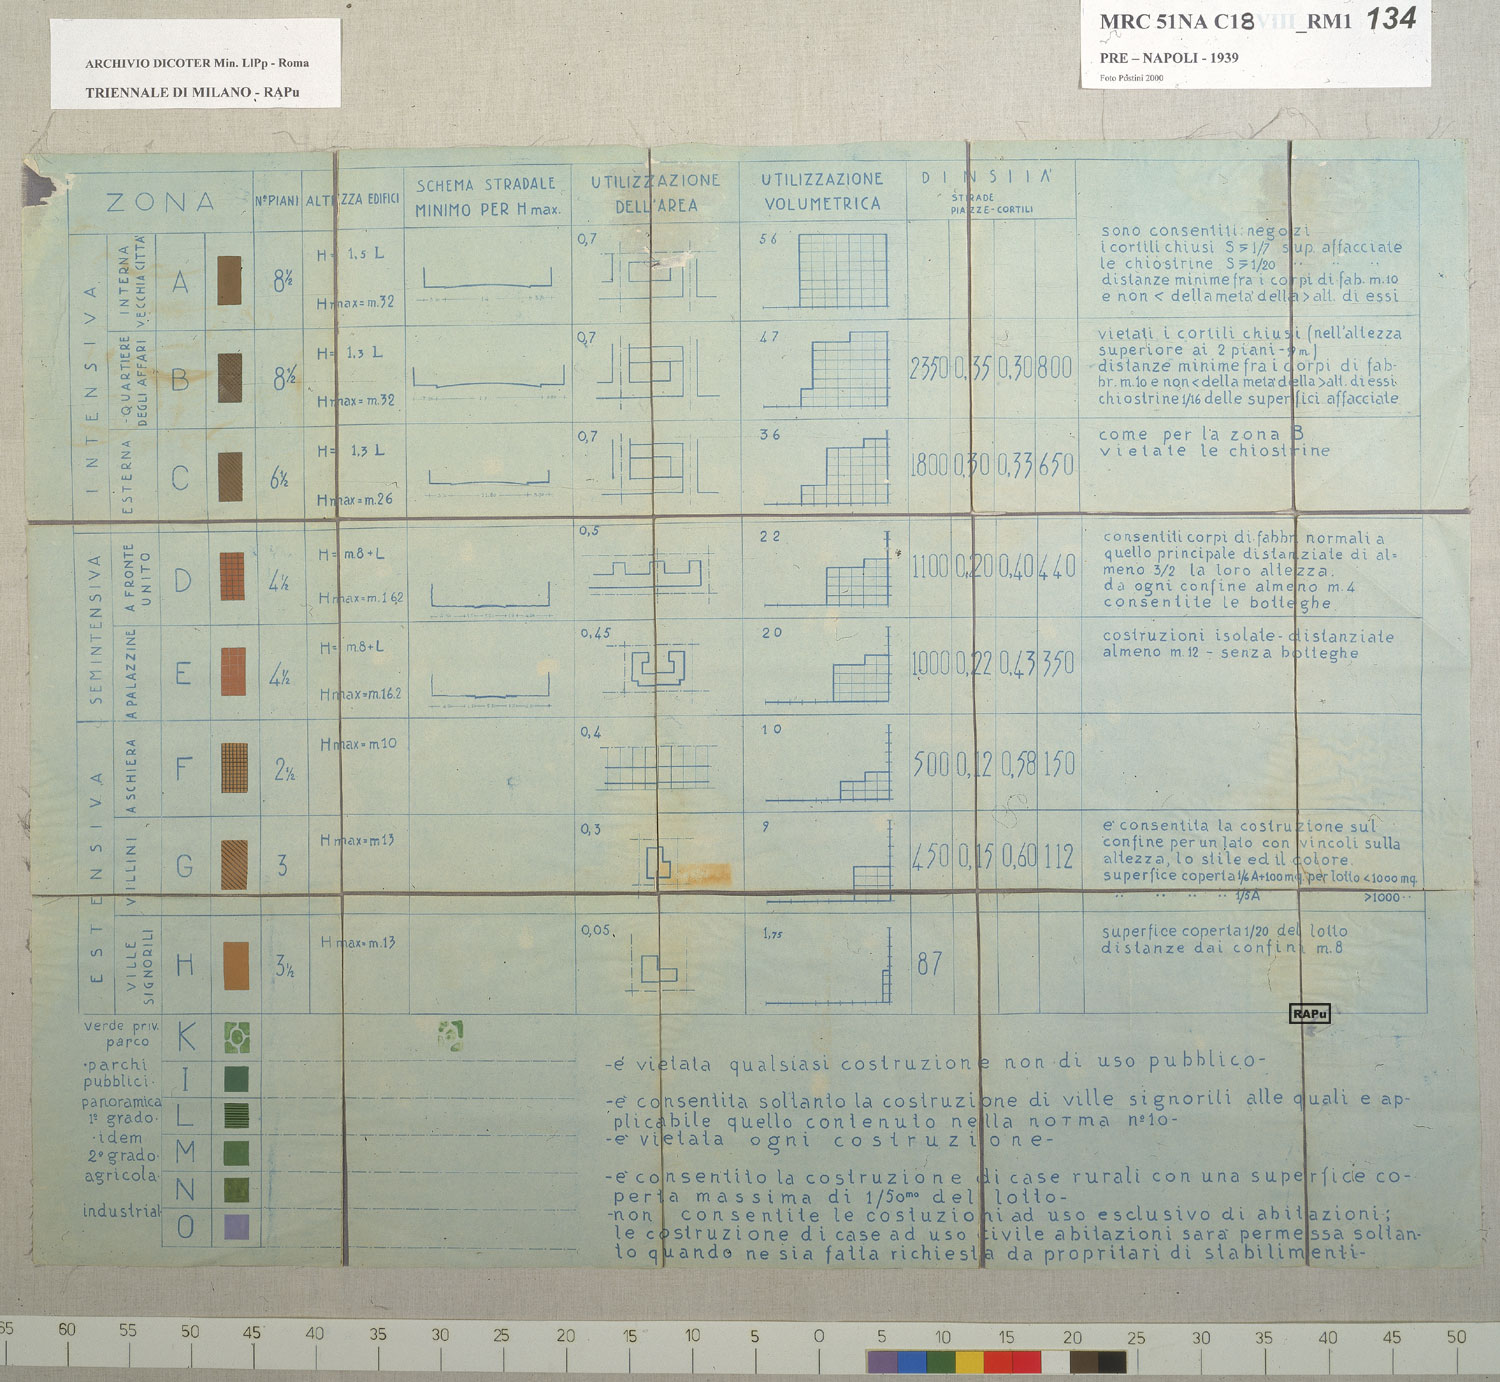 ARCHIVIO DICOTER Min. LlPp - Roma
TRIENNALE DI MILANO - RAPu
MRC 51NA C18 VIII_RM1 134
PRE – NAPOLI - 1939
Foto Postini 2000
ZONA
N° PIANI
ALTEZZA EDIFICI
SCHEMA STRADALE
MINIMO PER H max.
UTILIZZAZIONE
DELL'AREA
UTILIZZAZIONE
VOLUMETRICA
DINSIIA'
STRADE
PIAZZE-CORTILI
INTENSIVA
INTERNA
VECCHIA CITTA'
A
8½
H= 1,5 L
H max=m.32
0,7
56
sono consentiti: negozi
i cortili chiusi S ≡ 1/7 sup. affacciate
le chiostrine S ≡ 1/20 " " "
distanze minime fra i corpi di fab. m.10
e non < della meta' della > alt. di essi
QUARTIERE
DEGLI AFFARI
B
8½
H= 1,3 L
H max=m.32
0,7
47
2350 0,35 0,30 800
vietati i cortili chiusi (nell'altezza
superiore ai 2 piani-9m)
distanze minime fra i corpi di fab-
br. m.10 e non < della meta' della > alt. di essi
chiostrine 1/16 delle superfici affacciate
ESTERNA
C
6½
H= 1,3 L
H max=m.26
0,7
36
1800 0,30 0,33 650
come per la zona B
vietate le chiostrine
SEMINTENSIVA
A FRONTE
UNITO
D
4½
H= m.8+L
H max=m.16,2
0,5
22
1100 0,20 0,40 440
consentiti corpi di fabbr. normali a
quello principale distanziate di al=
meno 3/2 la loro altezza.
da ogni confine almeno m.4
consentite le botteghe
A PALAZZINE
E
4½
H= m.8+L
H max=m.16.2
0,45
20
1000 0,22 0,43 350
costruzioni isolate- distanziate
almeno m.12 - senza botteghe
ESTENSIVA
A SCHIERA
F
2½
H max=m.10
0,4
10
500 0,12 0,58 150
VILLINI
G
3
H max=m13
0,3
9
450 0,15 0,60 112
e' consentita la costruzione sul
confine per un lato con vincoli sulla
altezza, lo stile ed il colore.
superfice coperta 1/6 A+100 mq. per lotto <1000 mq.
" " " " 1/5A >1000 "
VILLE
SIGNORILI
H
3½
H max=m.13
0,05
1,75
87
superfice coperta 1/20 del lotto
distanze dai confini m.8
RAPu
verde priv.
parco
K
-e' vietata qualsiasi costruzione non di uso pubblico-
·parchi
pubblici·
I
panoramica
1º grado·
L
-e' consentita soltanto la costruzione di ville signorili alle quali e ap-
plicabile quello contenuto nella norma nº10-
·idem
2º grado·
M
-e' vietata ogni costruzione-
agricola·
N
-e' consentito la costruzione di case rurali con una superfice co-
perta massima di 1/50mo del lotto-
industrial
O
-non consentite le costuzioni ad uso esclusivo di abitazioni;
le costruzione di case ad uso civile abitazioni sara' permessa soltan-
to quando ne sia fatta richiesta da propritari di stabilimenti-
65 60 55 50 45 40 35 30 25 20 15 10 5 0 5 10 15 20 25 30 35 40 45 50